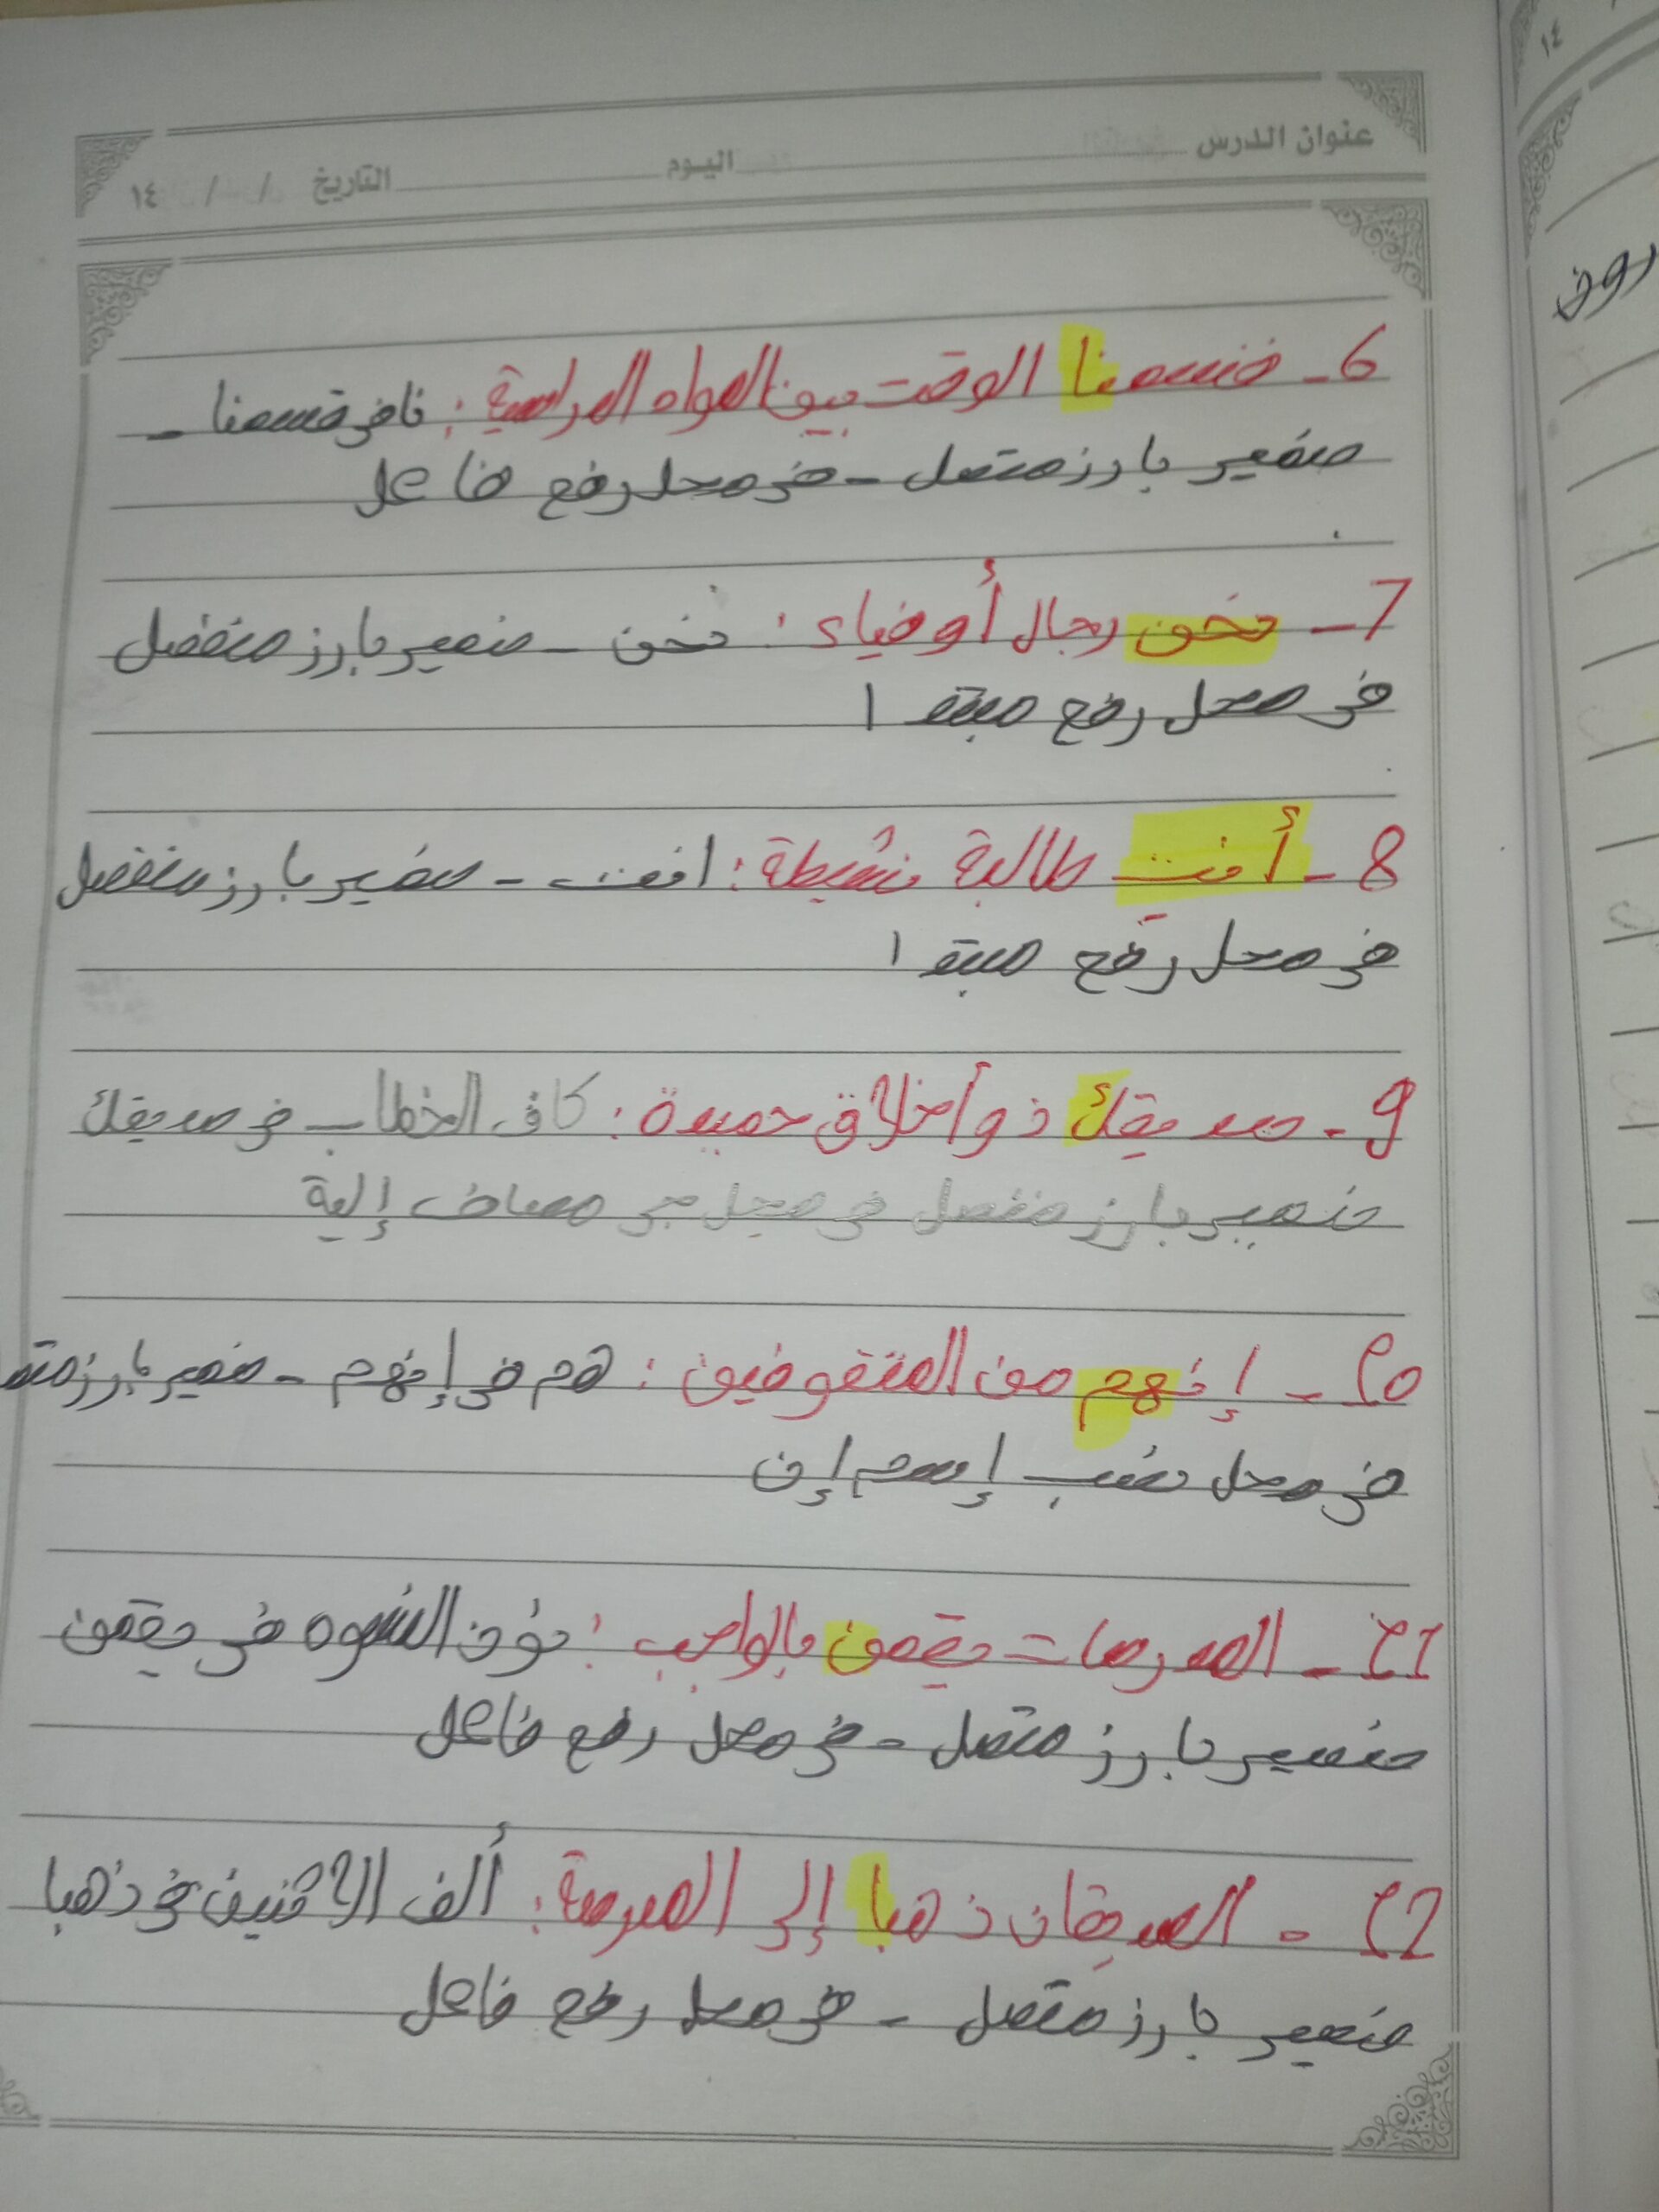 عنوان الدرس اليوم التاريخ / / ١٤
6- قسمنا الوقت بين المواد الدراسية : نا في قسمنا -
ضمير بارز متصل - في محل رفع فاعل
7- نحن رجال أوفياء : نحن - ضمير بارز منفصل
في محل رفع مبتدا
8- أنت طالبة نشيطة : انت - ضمير بارز منفصل
في محل رفع مبتدا
9- صديقك ذو أخلاق حميدة : كاف الخطاب في صديقك
ضمير بارز متصل في محل جر مضاف إلية
10- إنهم من المتفوقين : هم في إنهم - ضمير بارز
في محل نصب إسم إن
11- المدرسات يقمن بالواجب : نون النسوه في يقمن
ضمير بارز متصل - في محل رفع فاعل
12- الصديقان ذهبا إلى المدرسة : ألف الاثنين في ذهبا
ضمير بارز متصل - في محل رفع فاعل
١٤